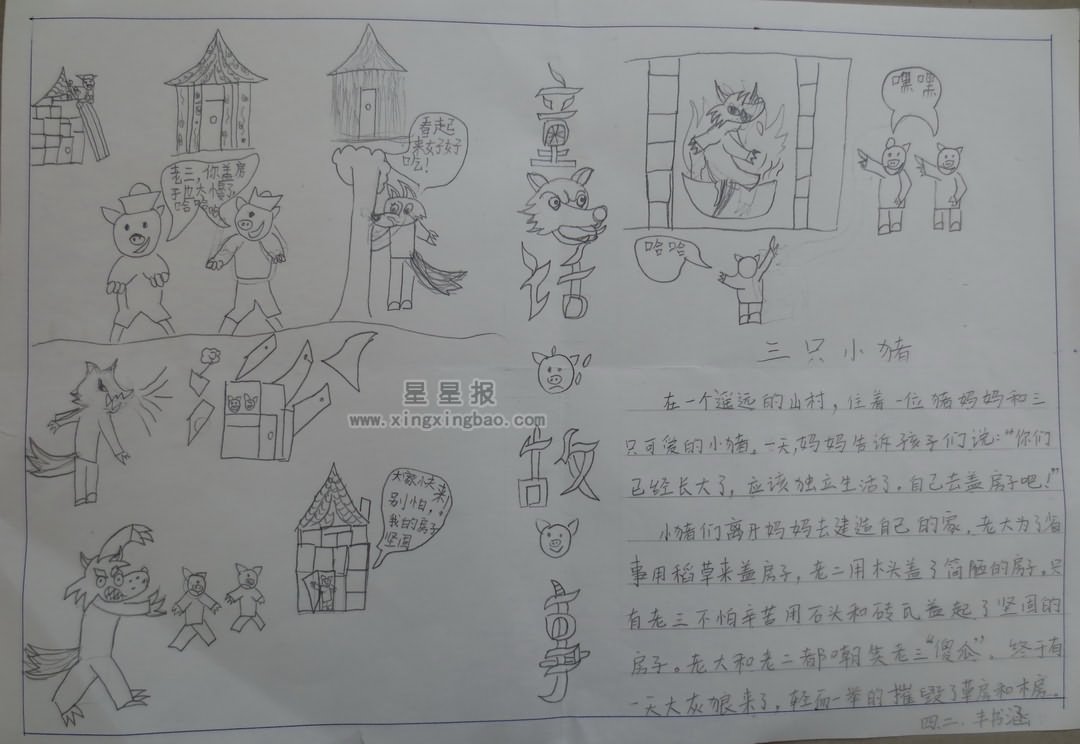 老三，你盖房
子也太慢了
哈哈哈
看起
来好好
吃！
童话
故事
嘿嘿
哈哈
星星报
www.xingxingbao.com
大家快来
别怕，
我的房子
坚固
三只小猪
在一个遥远的山村，住着一位猪妈妈和三
只可爱的小猪。一天，妈妈告诉孩子们说：“你们
已经长大了，应该独立生活了，自己去盖房子吧！”
小猪们离开妈妈去建造自己的家，老大为了省
事用稻草来盖房子，老二用木头盖了简陋的房子，只
有老三不怕辛苦用石头和砖瓦盖起了坚固的
房子。老大和老二都嘲笑老三“傻瓜”。终于有
一天大灰狼来了，轻而一举的摧毁了草房和木房。
四.二.丰书涵